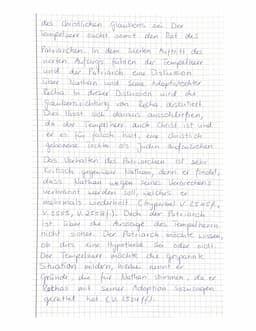 des christlichen Glaubens sei. Der
Tempelherr sucht somit den Rat des
Patriarchen. In dem vierten Auftritt des
vierten Aufzugs führen der Tempelherr
und der Patriarch eine Diskussion
über Nathan und seine Adoptivtochter
Recha. In dieser Diskussion wird die
Glaubensrichtung von Recha diskutiert.
Dies lässt sich daraus ausschließen,
da der Tempelherr auch Christ ist und
er es für falsch hält, eine christlich
geborene Tochte als Juden aufzuziehen.
Das Verhalten des Patriarchen ist sehr
kritisch gegenüber Nathan, denn er findet,
dass Nathan wegen seines Verbrechens
verbrannt werden soll, welches er
mehrmals wiederholt (Hyperbel V. 2546f.,
V. 2553, V. 2558f.). Doch der Patriarch
ist über die Aussage des Tempelherren
nicht sicher. Der Patriarch möchte wissen,
ob dies eine Hypothese sei oder nicht.
Der Tempelherr möchte die gespannte
Situation mildern, hierbei nennt er
Gründe, die für Nathan stimmen, da er
Rechas mit seiner Adoption sozusagen
gerettet hat (V. ff.).